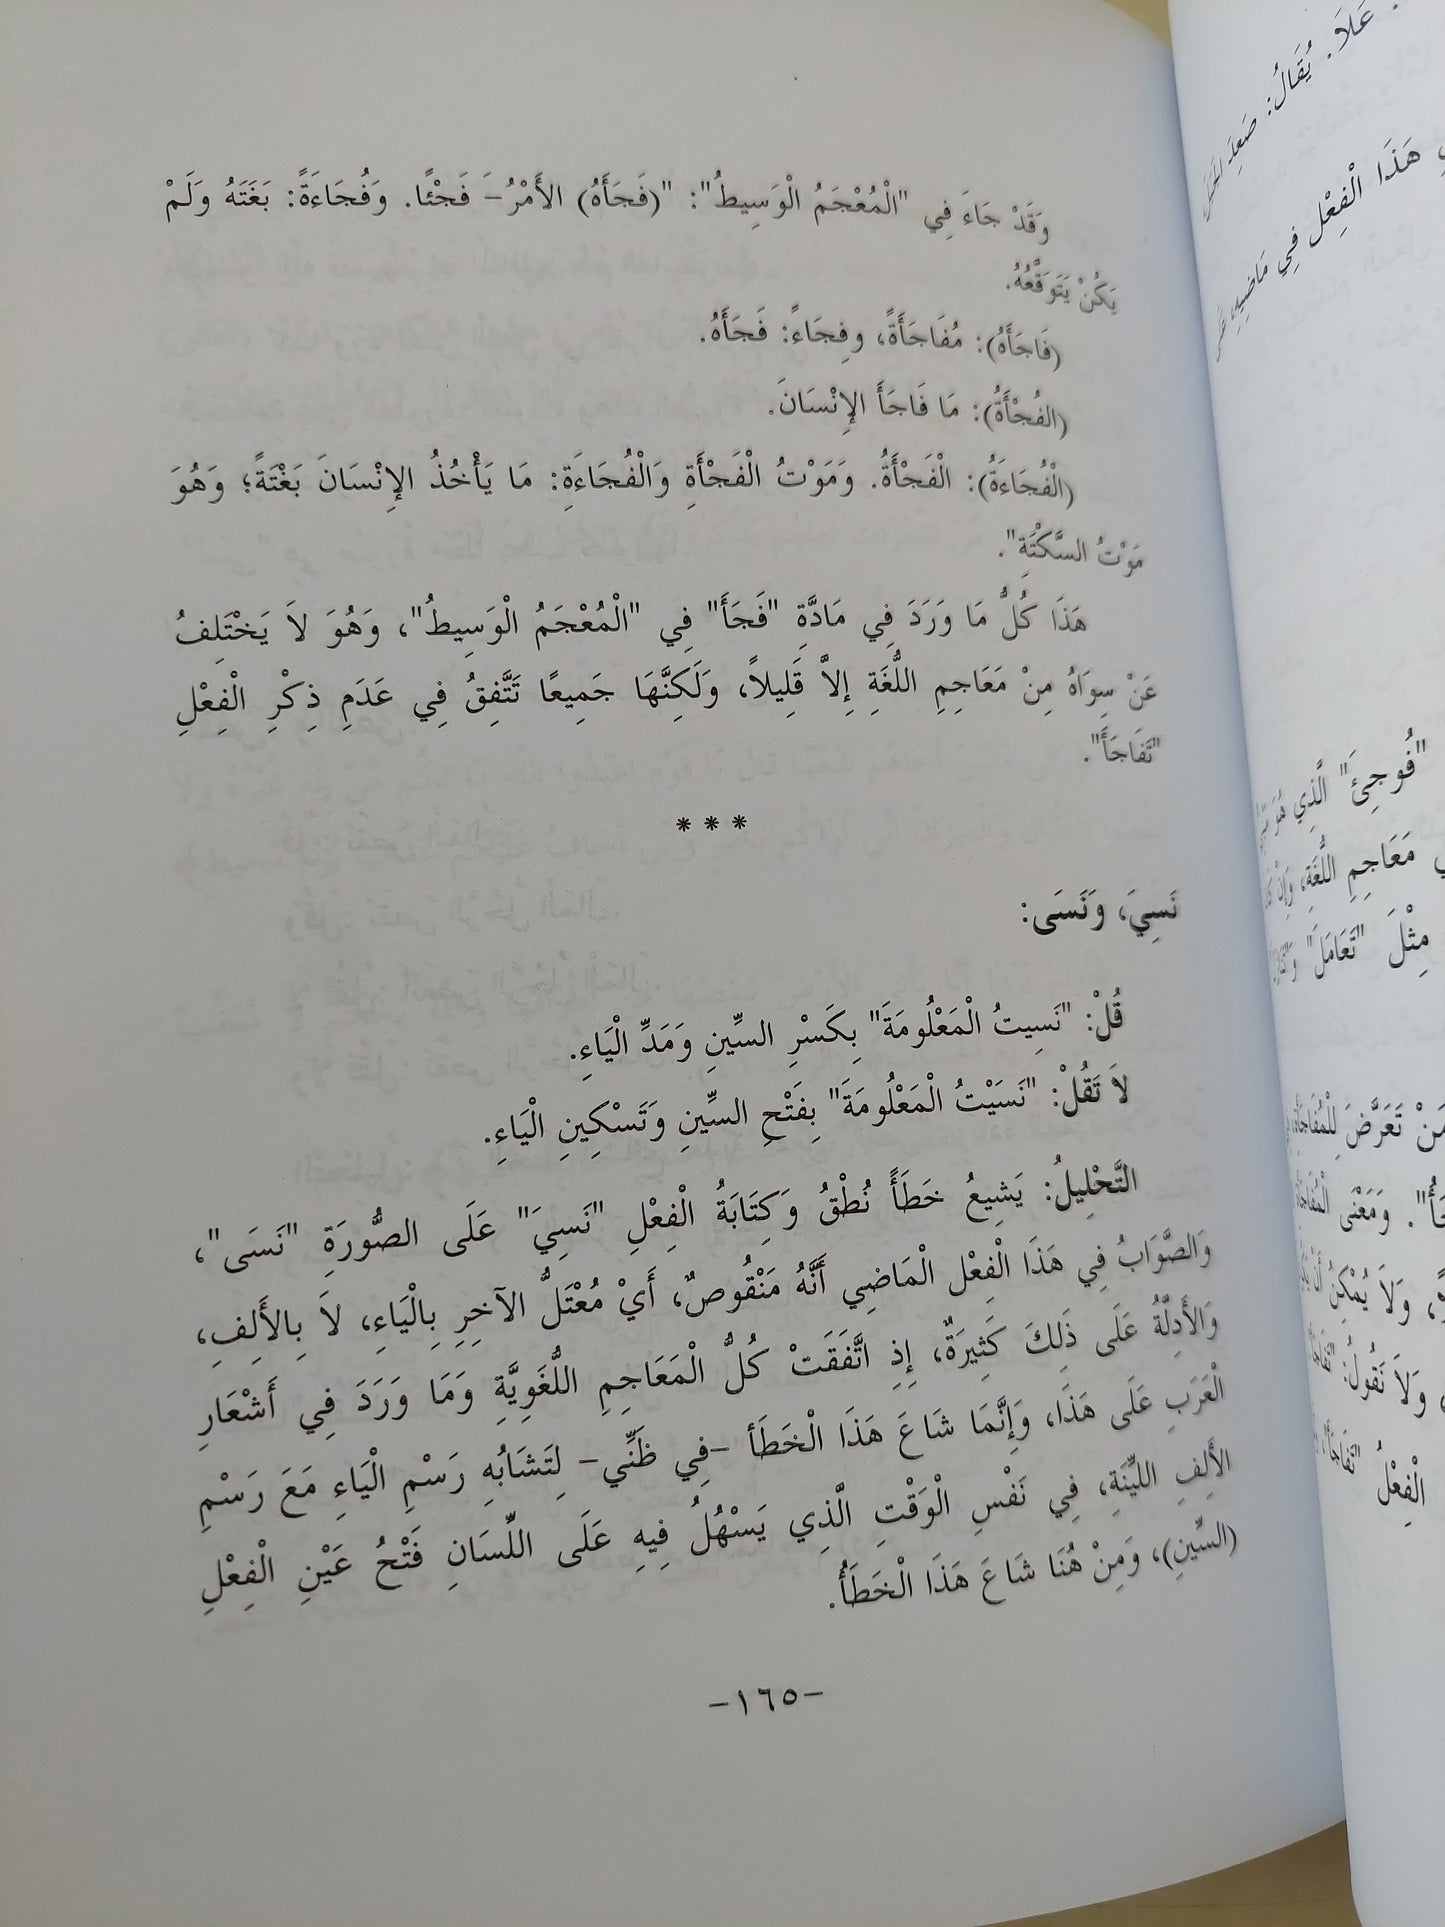 وَقَدْ جَاءَ فِي "الْمُعْجَمُ الْوَسِيطُ": "(فَجَأَهُ) الأَمْرُ- فَجْئًا. وَفُجَاءَةً: بَغَتَهُ وَلَمْ
يَكُنْ يَتَوَقَّعُهُ.
(فَاجَأَهُ): مُفَاجَأَةً، وفِجَاءً: فَجَأَهُ.
(الفُجْأَةُ): مَا فَاجَأَ الإِنْسَانَ.
(الْفُجَاءَةُ): الْفَجْأَةُ. وَمَوْتُ الْفَجْأَةِ وَالْفُجَاءَةِ: مَا يَأْخُذُ الإِنْسَانَ بَغْتَةً؛ وَهُوَ
مَوْتُ السَّكْتَةِ".
هَذَا كُلُّ مَا وَرَدَ فِي مَادَّةِ "فَجَأَ" فِي "الْمُعْجَمُ الْوَسِيطُ"، وَهُوَ لاَ يَخْتَلِفُ
عَنْ سِوَاهُ مِنْ مَعَاجِمِ اللُّغَةِ إِلاَّ قَلِيلاً، وَلَكِنَّهَا جَمِيعًا تَتَّفِقُ فِي عَدَمِ ذِكْرِ الْفِعْلِ
"تَفَاجَأَ".
* * *
نَسِيَ، وَنَسَى:
قُلْ: "نَسِيتُ الْمَعْلُومَةَ" بِكَسْرِ السِّينِ وَمَدِّ الْيَاءِ.
لاَ تَقُلْ: "نَسَيْتُ الْمَعْلُومَةَ" بِفَتْحِ السِّينِ وَتَسْكِينِ الْيَاءِ.
التَّحْلِيلُ: يَشِيعُ خَطَأً نُطْقُ وَكِتَابَةُ الْفِعْلِ "نَسِيَ" عَلَى الصُّورَةِ "نَسَى"،
وَالصَّوَابُ فِي هَذَا الْفِعْل الْمَاضِي أَنَّهُ مَنْقُوصٌ، أَيْ مُعْتَلُّ الآخِرِ بِالْيَاءِ، لاَ بِالأَلِفِ،
وَالأَدِلَّةُ عَلَى ذَلِكَ كَثِيرَةٌ، إِذِ اتَّفَقَتْ كُلُّ الْمَعَاجِمِ اللُّغَوِيَّةِ وَمَا وَرَدَ فِي أَشْعَارِ
الْعَرَبِ عَلَى هَذَا، وَإِنَّمَا شَاعَ هَذَا الْخَطَأ -فِي ظَنِّي- لِتَشَابُهِ رَسْمِ الْيَاءِ مَعَ رَسْمِ
الأَلِفِ اللَّيِّنَةِ، فِي نَفْسِ الْوَقْتِ الَّذِي يَسْهُلُ فِيهِ عَلَى اللِّسَانِ فَتْحُ عَيْنِ الْفِعْلِ
(السِّينِ)، وَمِنْ هُنَا شَاعَ هَذَا الْخَطَأُ.
-١٦٥-
عَلاَ. يُقَالُ: صَعِدَ الجَبَلَ
هَذَا الْفِعْل فِي مَاضِيهِ،
"فُوجِئَ" الَّذِي هُوَ
مَعَاجِمِ اللُّغَةِ، وَإِنْ
مِثْلَ "تَعَامَلَ"
مَنْ تَعَرَّضَ لِلْمُفَاجَأَةِ
وَمَعْنَى الْمُفَاجَأَةِ
وَلاَ يُمْكِنُ أَنْ
وَلاَ نَقُولُ:
الْفِعْلُ "تَفَاجَأَ"